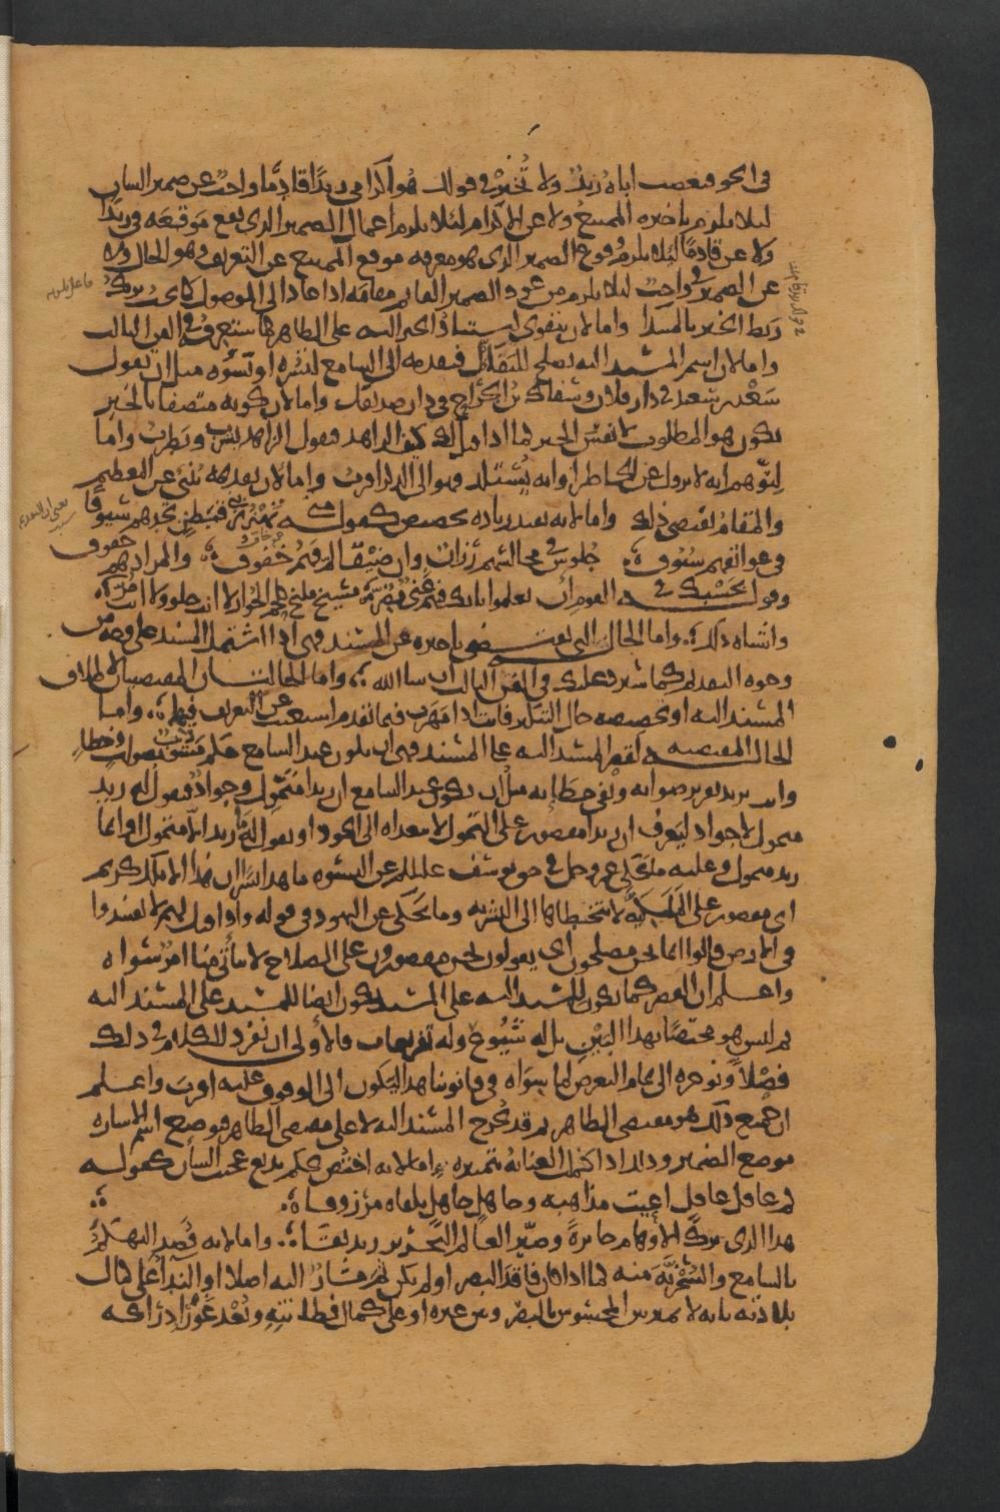 في اكرمني فعصيت اباه زيد ولا تخبر في قولك هو اكرامي زيدا قادما واجب عن ضمير الشان
لئلا يلزم تاخيره الممتنع ولا عن الاكرام لئلا يلزم اعمال الضمير الذي يقع موقعه في زيدا
ولا عن قادما لئلا يلزم وقوع الضمير الذي هو معرفة موقع الممتنع عن التعريف وهو الحال ولا
عن الضمير في واجب لئلا يلزم من عود الضمير القائم مقامه اذا عاد الى الموصول ترك
ربط الخبر بالمبتدا واما لان يتقوى استناد الخبر اليه على الظاهر كما ستعرفه في الفن الثالث
واما لان اسم المسند اليه يصلح للتفاؤل فتقدمه الى السامع لتسره او تسوه مثل ان تقول
سعد بن سعيد في دار فلان وسفاك بن الجراح في دار صديقك واما لان كونه متصفا بالخبر
يكون هو المطلوب لا نفس الخبر كما اذا قيل لك كيف الزاهد فتقول الزاهد يشرب ويطرب واما
لتوهم انه لا يزول عن الخاطر او انه يستلذ فهو الى الذكر اقرب واما لان تقديمه ينبئ عن التعظيم
والمقام يقتضي ذلك واما لانه يفيد زيادة تخصيص كقوله متى تهزز بني قطن تجدهم سيوفا
في عواتقهم سيوف جلوس في مجالسهم رزان وان ضيف الم فهم خفوف والمراد هم خفوف
وقوله بحسبك في القوم ان يعلموا بانك فيهم غني مضر مسيخ مليخ كلحم الحوار لا انت حلو ولا انت مر
واشباه ذلك واما الحالة التي تقتضي تاخيره عن المسند فهي اذا اشتمل المسند على وجه من
وجوه التقديم كما سيرد عليك في الفن الثالث ان شا الله واما الحالتان المقتضيتان لاطلاق
المسند اليه او تخصيصه حال التنكير فانت اذا مهرت فيما تقدم استغنيت عن التعريف فيهما واما
الحالة المقتضية لقصر المسند اليه على المسند فهي ان يكون عند السامع حكم مشوب بصواب وخطا
وانت تريد تقرير صوابه ونفي خطائه مثل ان يكون عند السامع ان زيدا متمول وجواد فتقول له زيد
متمول لا جواد ليعرف ان زيدا مقصور على التمول لا يتعداه الى الجود او تقول له ما زيد الا متمول او انما
زيد متمول وعليه ما يحكي عز وجل في حق يوسف عليه السلام عن النسوة ما هذا بشرا ان هذا الا ملك كريم
اي مقصور على الملكية لا يتخطاها الى البشرية وما يحكى عن اليهود في قوله واذا قيل لهم لا تفسدوا
في الارض قالوا انما نحن مصلحون اي يقولون نحن مقصورون على الصلاح لا يتاتى منا امر سواه
واعلم ان القصر كما يكون للمسند اليه على المسند يكون ايضا للمسند على المسند اليه
ثم ليس هو مختصا بهذا البين بل له شيوع وله تفريعات فالاولى ان نفرد للكلام في ذلك
فصلا ونوخره الى تمام التعرض لما سواه في قانوننا هذا ليكون الى الوقوف عليه اقرب واعلم
ان جميع ذلك هو مقتضى الظاهر ثم قد يخرج المسند اليه لا على مقتضى الظاهر فيوضع اسم الاشارة
موضع الضمير وذلك اذا كملت العناية بتميزه اما لانه اختص بحكم بديع عجيب الشان كقوله
كم عاقل عاقل اعيت مذاهبه وجاهل جاهل تلقاه مرزوقا
هذا الذي ترك الاوهام حائرة وصير العالم النحرير زنديقا واما لانه قصد التهكم
بالسامع والسخرية منه كما اذا كان فاقد البصر او لم يكن ثم مشار اليه اصلا او النداء على كمال
بلادته بانه لا يميز بين المحسوس بالبصر وبين غيره او على كمال فطانته وبعد غور ادراكه